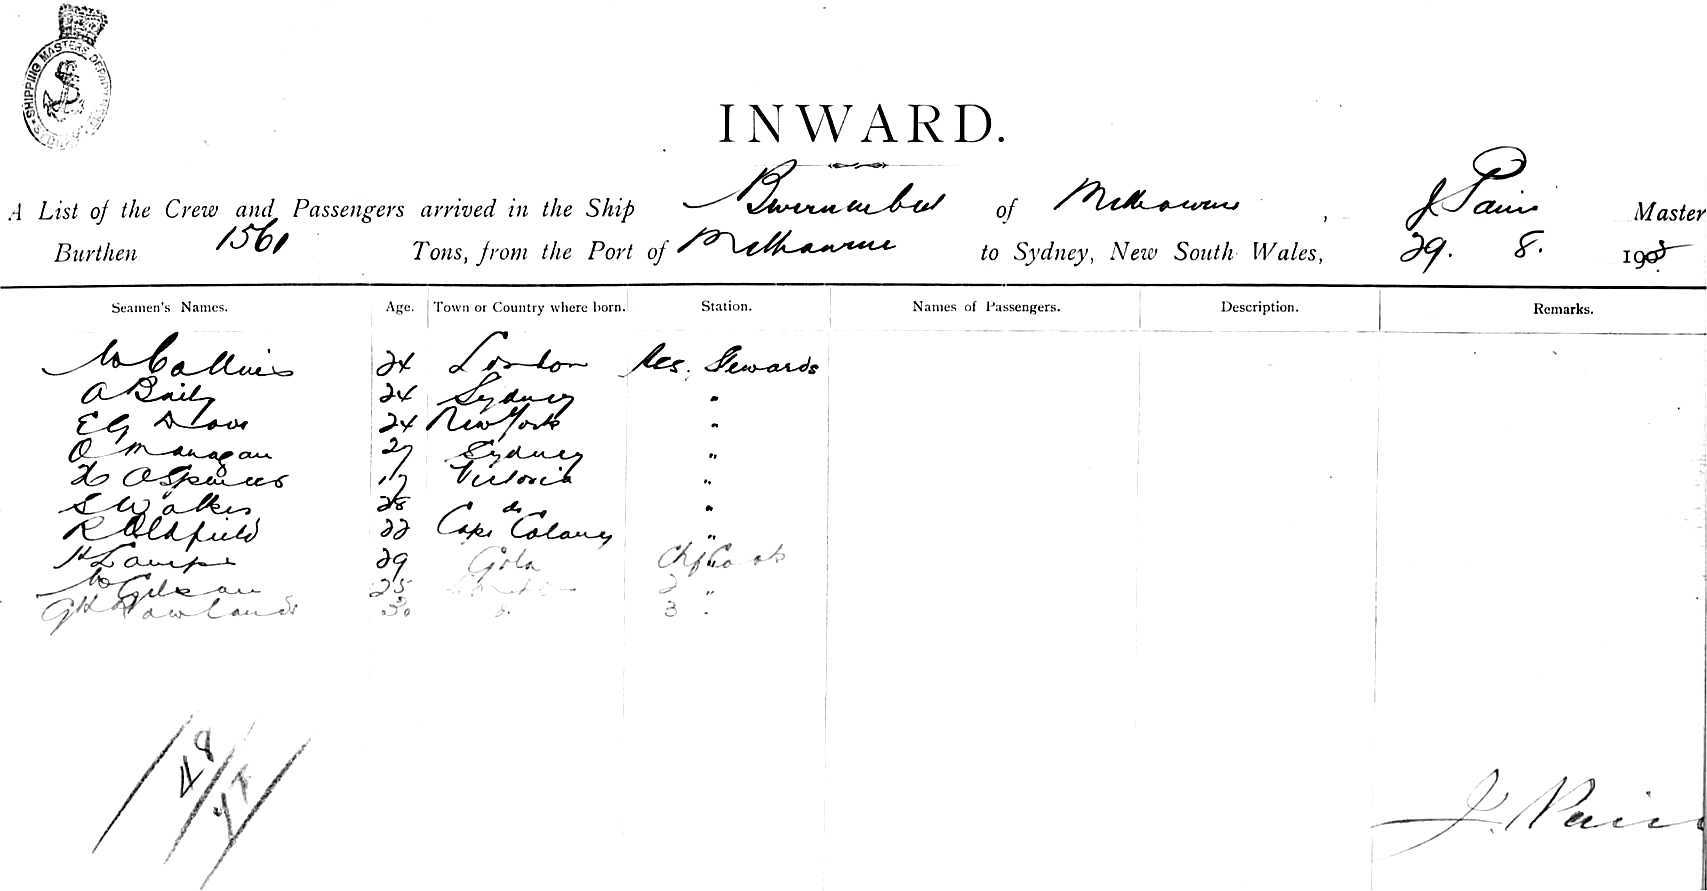 SHIPPING MASTERS DEPARTMENT
INWARD.
A List of the Crew and Passengers arrived in the Ship of Melbourne, J Pain Master
Burthen 1561 Tons, from the Port of Melbourne to Sydney, New South Wales, 29. 8. 1908
Seamen's Names. Age. Town or Country where born. Station. Names of Passengers. Description. Remarks.
W Collins 24 London Stewards
A Baily 24 Sydney "
E G 24 New York "
O Managan 27 Sydney "
A Spencer 17 Victoria "
S Walker 28 do "
R Oldfield 22 Cape Colony "
H 29 Cook
W Gibson 25 2 "
G H Rowlands 30 3 "
48
47
J. Pain